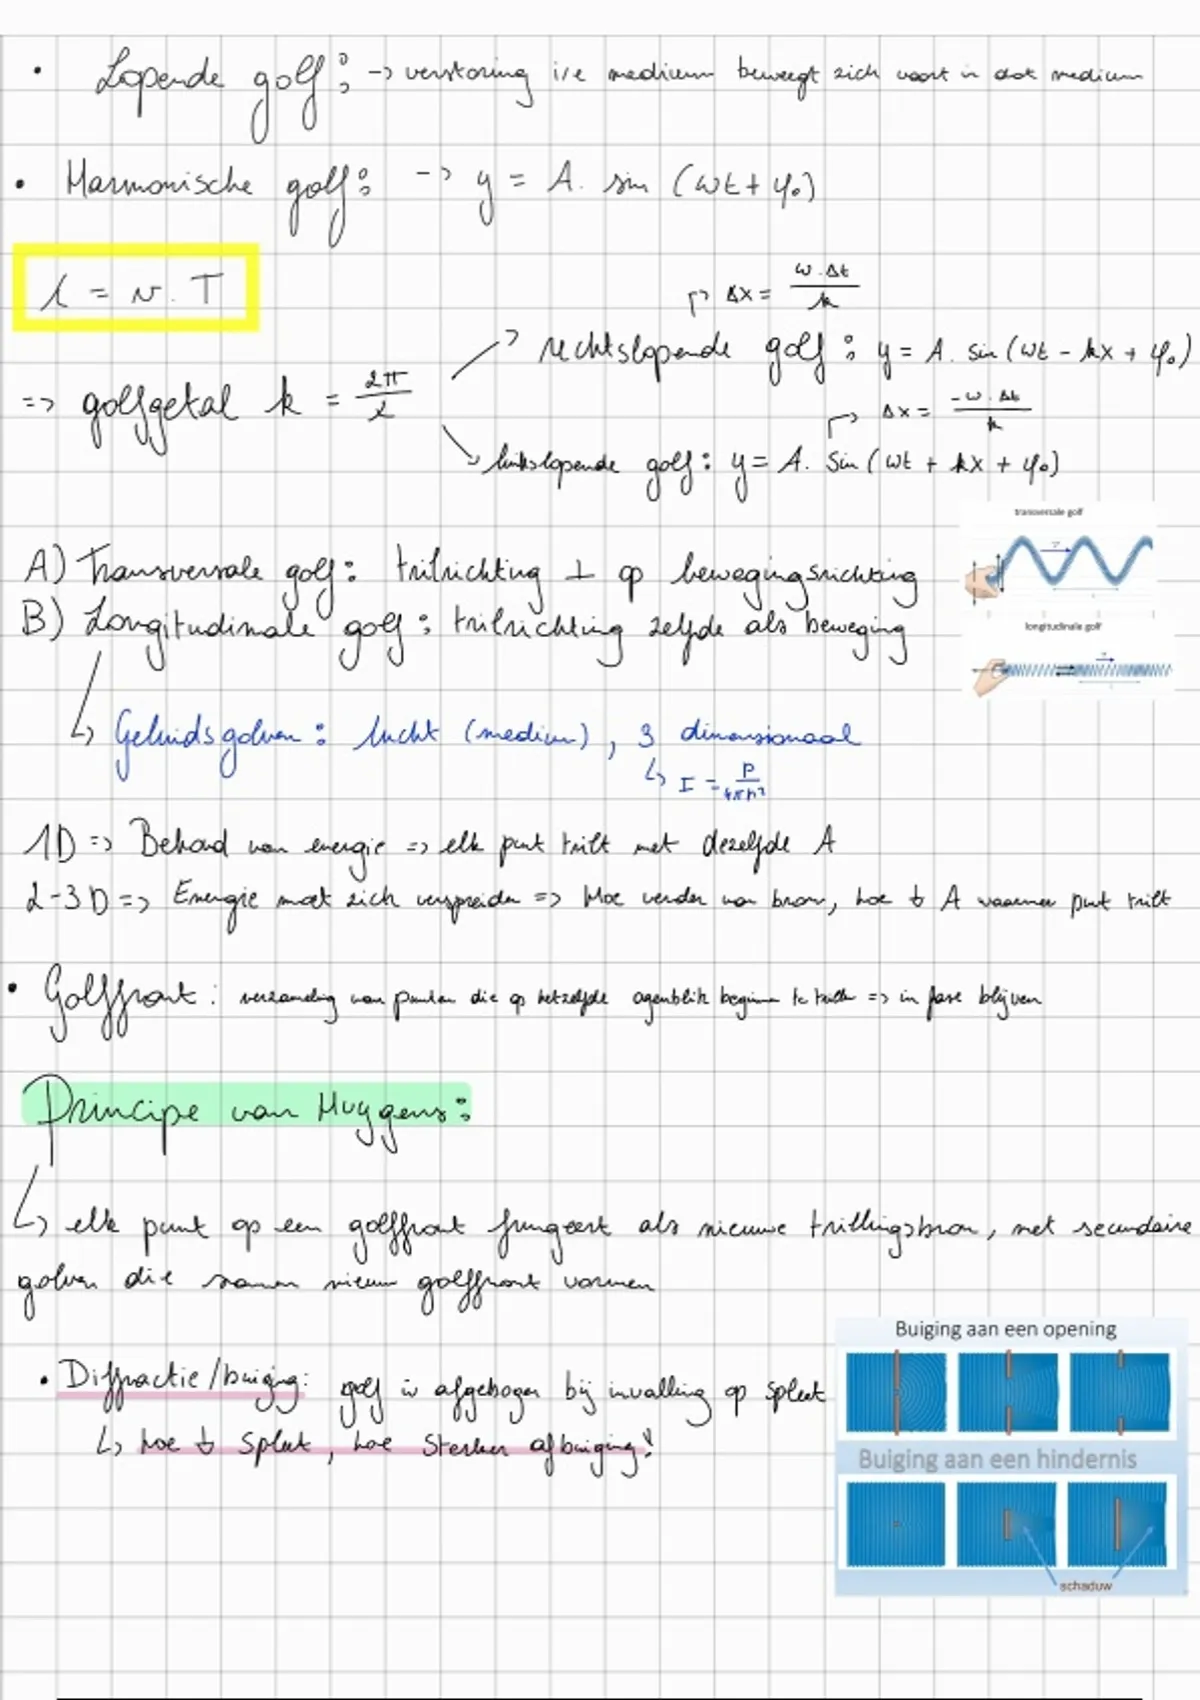 • Lopende golf: -> verstoring i/e medium beweegt zich voort in dat medium
• Harmonische golf: -> y = A. sin (ωt + φ₀)
λ = v . T
↱ Δx = ω.Δt / k
rechtslopende golf : y = A. sin (ωt - kx + φ₀)
=> golfgetal k = 2π / λ
↱ Δx = -ω. Δt / k
linkslopende golf : y = A. sin (ωt + kx + φ₀)
transversale golf
A) Transversale golf : trilrichting ⊥ op bewegingsrichting
B) Longitudinale golf : trilrichting zelfde als beweging
longitudinale golf
↳ Geluidsgolven : lucht (medium), 3 dimensionaal
↳ I = P / 4πr²
1D => Behoud van energie => elk punt trilt met dezelfde A
2-3D => Energie moet zich verspreiden => Hoe verder van bron, hoe ↓ A waarmee punt trilt
• Golffront : verzameling van punten die op hetzelfde ogenblik beginnen te trillen => in fase blijven
Principe van Huygens :
↳ elk punt op een golffront fungeert als nieuwe trillingsbron, met secundaire
golven die samen nieuw golffront vormen
Buiging aan een opening
• Diffractie/buiging: golf is afgebogen bij invalling op spleet
↳ hoe ↓ spleet, hoe sterker afbuiging!
Buiging aan een hindernis
schaduw